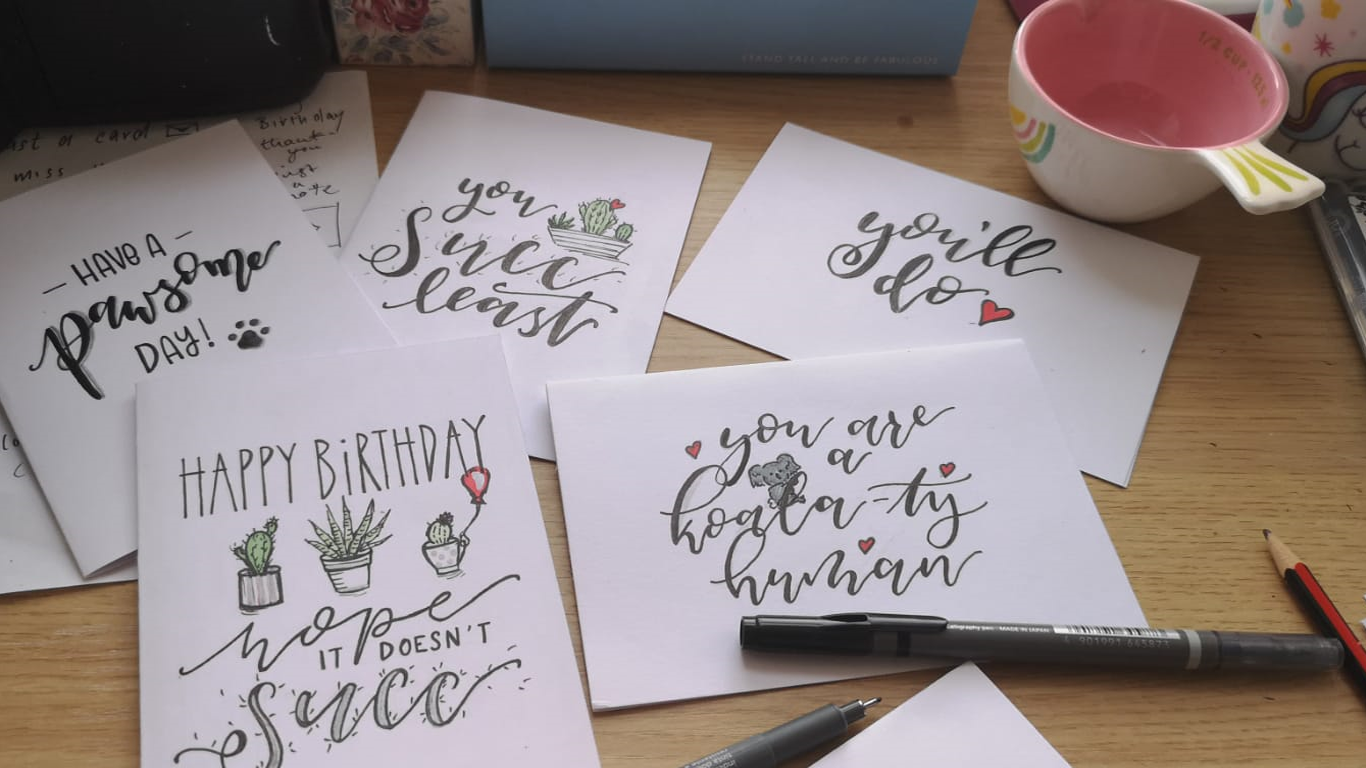 STAND TALL AND BE FABULOUS
1/2 CUP
a card
miss
Birthday
thank-
you
just
a
note
HAVE A
pawsome
DAY!
you
Succ
least
you'll
do
HAPPY BIRTHDAY
hope
IT DOESN'T
Succ
you are
a
koala-ty
human
MADE IN JAPAN
4 901991 665873